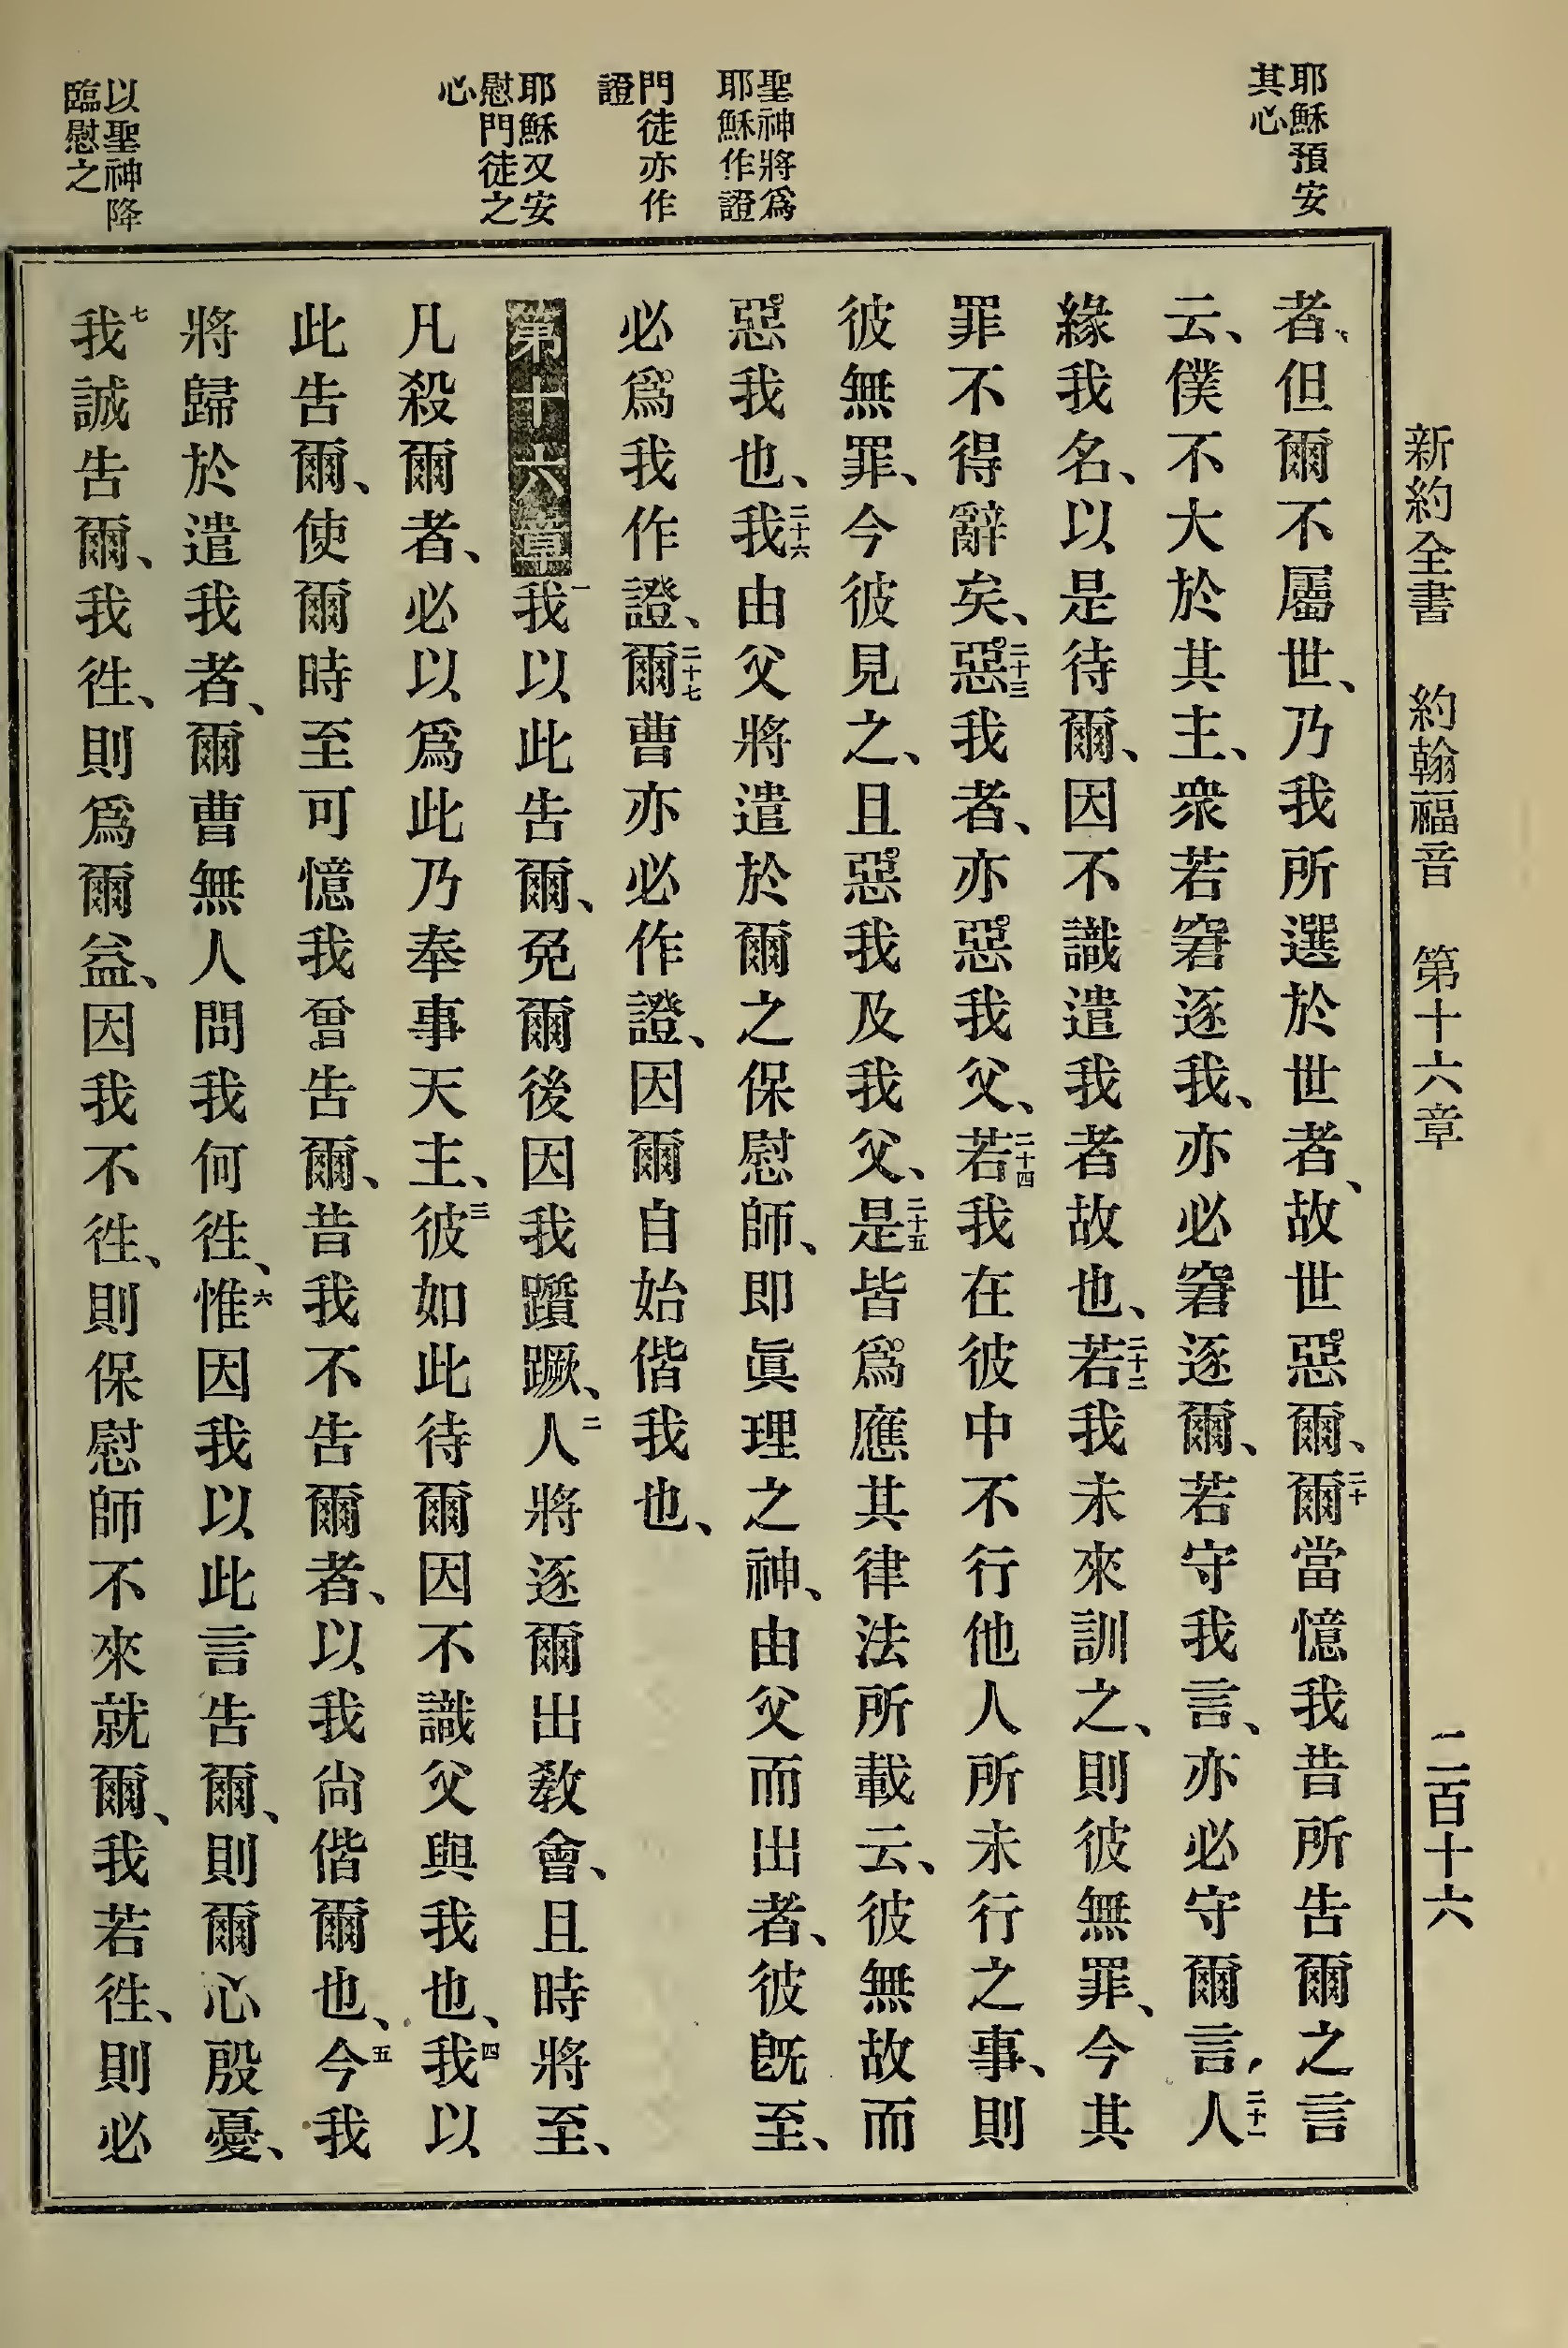 新約全書 約翰福音 第十六章 二百十六
耶穌預安
其心
聖神將爲
耶穌作證
門徒亦作
證
耶穌又安
慰門徒之
心
以聖神降
臨慰之
者、但爾不屬世、乃我所選於世者、故世惡爾、二十爾當憶我昔所告爾之言
云、僕不大於其主、衆若窘逐我、亦必窘逐爾、若守我言、亦必守爾言、二十一人
緣我名、以是待爾、因不識遣我者故也、二十二若我未來訓之、則彼無罪、今其
罪不得辭矣、二十三惡我者、亦惡我父、二十四若我在彼中不行他人所未行之事、則
彼無罪、今彼見之、且惡我及我父、二十五是皆爲應其律法所載云、彼無故而
惡我也、二十六我由父將遣於爾之保慰師、卽眞理之神、由父而出者、彼旣至、
必爲我作證、二十七爾曹亦必作證、因爾自始偕我也、
第十六章一我以此告爾、免爾後因我躓蹶、二人將逐爾出敎會、且時將至、
凡殺爾者、必以爲此乃奉事天主、三彼如此待爾因不識父與我也、四我以
此告爾、使爾時至可憶我曾告爾、昔我不告爾者、以我尙偕爾也、五今我
將歸於遣我者、爾曹無人問我何徃、六惟因我以此言告爾、則爾心殷憂、
七我誠告爾、我徃、則爲爾益、因我不徃、則保慰師不來就爾、我若徃、則必